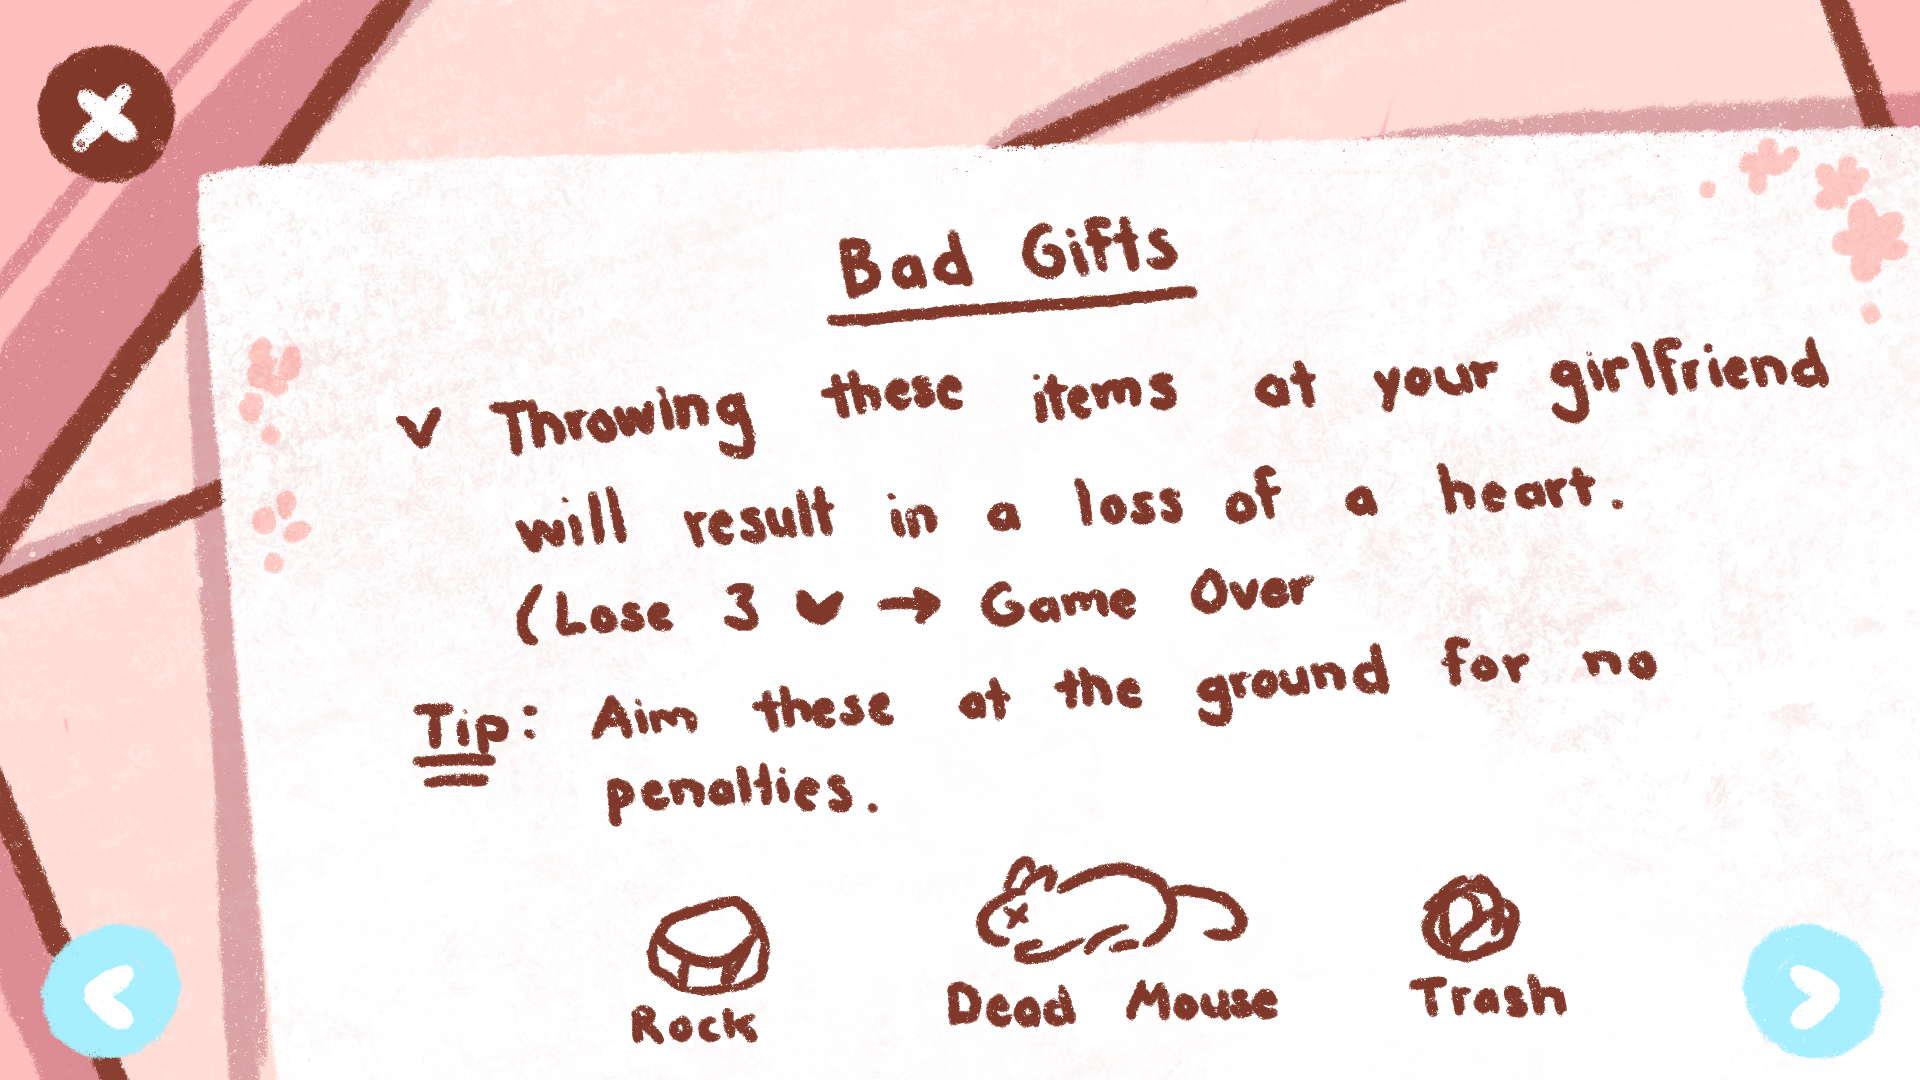 Bad Gifts
v Throwing these items at your girlfriend
will result in a loss of a heart.
(Lose 3 ♥ → Game Over
Tip: Aim these at the ground for no
penalties.
Rock
Dead Mouse
Trash